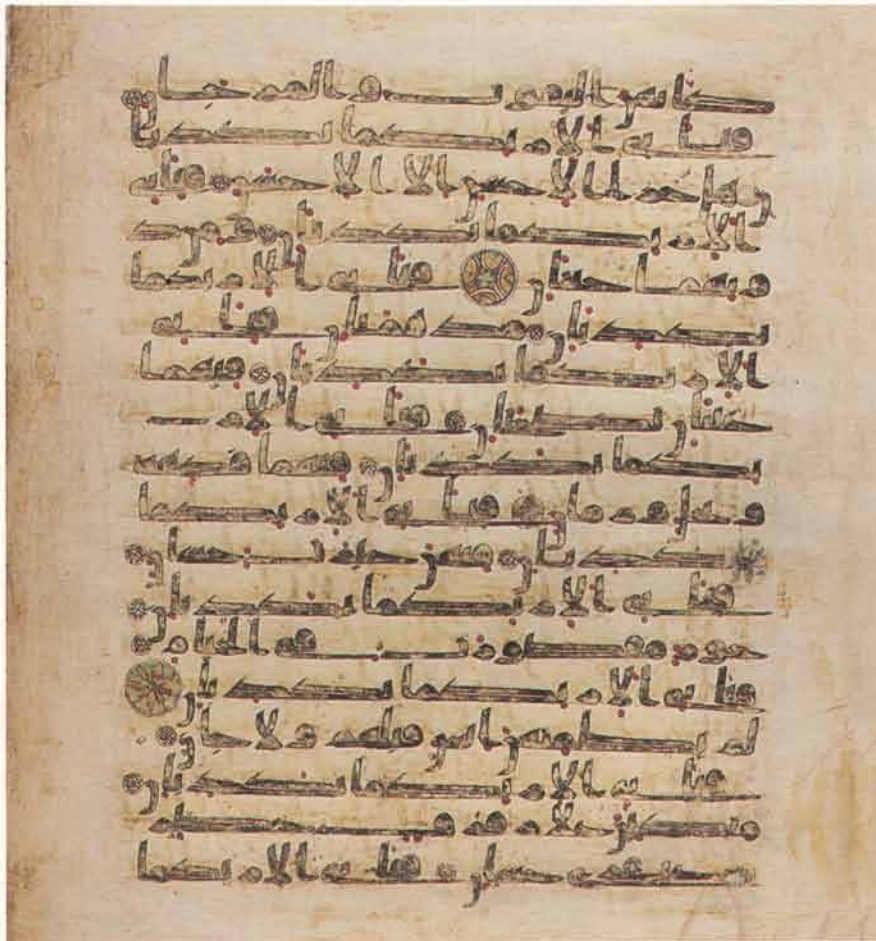 كانهن الياقوت والمرجان
فباى الا ربكما تكذبا
ن هل جزا الاحسن الا الاحسن فباى
الا ربكما تكذبان ومن د
ونهما جنتان فباى الا ربكما
تكذبان مدهامتان فباى
الا ربكما تكذبان فيهما
عينان نضاختان فباى الا ر
بكما تكذبان فيهما فكهة
ونخل ورمان فباى الا ربكما
تكذبان فيهن خيرت حسان
فباى الا ربكما تكذبان
حور مقصورت فى الخيام
فباى الا ربكما تكذبان
لم يطمثهن انس قبلهم ولا جان
فباى الا ربكما تكذبان
متكين على رفرف خضر
وعبقرى حسان فباى الا ربكما